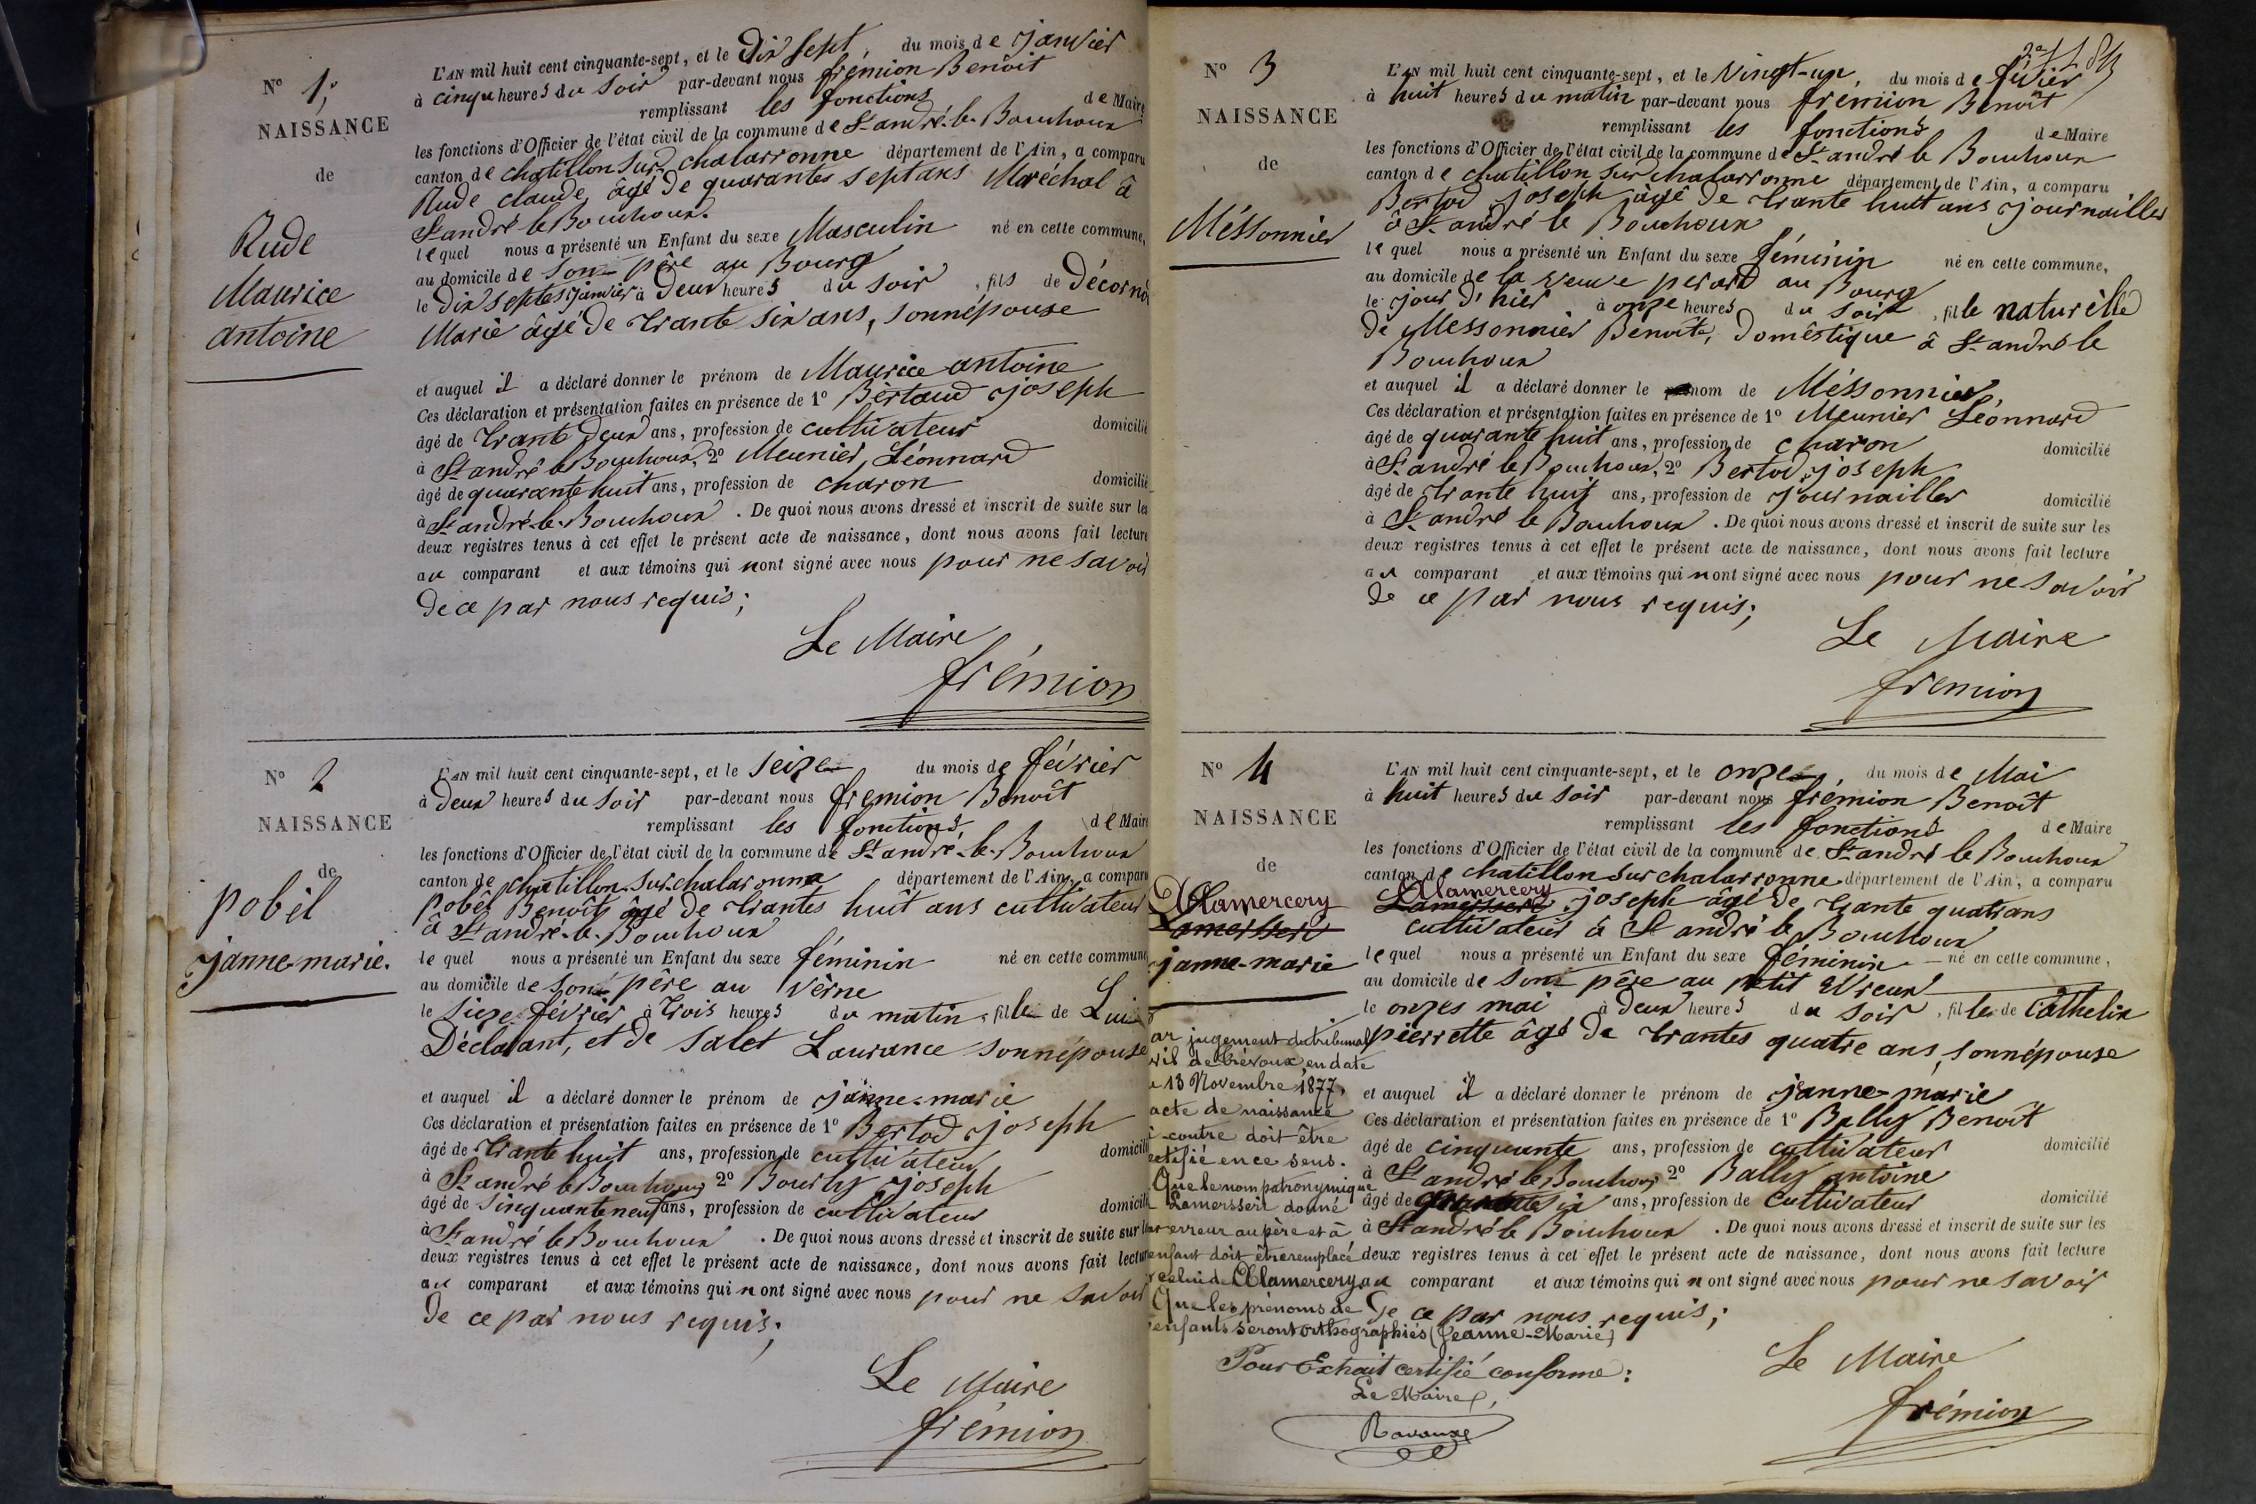 N° 1.
NAISSANCE
de
Rude
Maurice
antoine
L'AN mil huit cent cinquante-sept, et le Dix sept, du mois de janvier
à cinqu heures du soir par-devant nous frémion Benoît
remplissant les fonctions de Maire
les fonctions d'Officier de l'état civil de la commune de St andré-le-Bouchoux
canton de chatillon sur chalarronne département de l'Ain, a comparu
Rude claude âgé de quarantes sept ans Maréchal â
St andré-le Bouchoux.
lequel nous a présenté un Enfant du sexe Masculin né en cette commune,
au domicile de son père au Bourg
le Dix septes janvier à Deux heures du soir, fils de Décorno
Marie âgé de trante six ans, sonnépouse
et auquel il a déclaré donner le prénom de Maurice antoine
Ces déclaration et présentation faites en présence de 1° Bertaud joseph
âgé de trante Deux ans, profession de cultivateur domicilié
à St andré le Bouchoux, 2° Meunier, Léonnard
âgé de quarante huit ans, profession de charon domicilié
à St andré-le-Bouchoux. De quoi nous avons dressé et inscrit de suite sur les
deux registres tenus à cet effet le présent acte de naissance, dont nous avons fait lecture
au comparant et aux témoins qui nont signé avec nous pour ne savoir
de ce par nous requis;
Le Maire
frémion
N° 2
NAISSANCE
de
pobèl
janne-marie.
L'AN mil huit cent cinquante-sept, et le seize du mois de février
à Deux heures du soir par-devant nous fremion Benoît
remplissant les fonctions, de Maire
les fonctions d'Officier de l'état civil de la commune de St andré-le-Bouchoux
canton de chatillon-sur-chalaronne département de l'Ain, a comparu
pobèl Benoît âgé de trantes huit ans cultivateur
â St andré-le-Bouchoux
lequel nous a présenté un Enfant du sexe féminin né en cette commune
au domicile de son père au Vèrne
le sieze février à trois heures du matin, fille de Lui
Déclarant, et de Salet Laurance sonnépouse
et auquel il a déclaré donner le prénom de janne-marie
Ces déclaration et présentation faites en présence de 1° Bertod joseph
âgé de trante huit ans, profession de cultivateur domicilié
à St andré le Bouchoux 2° Bourly joseph
âgé de sinquante neuf ans, profession de cultivateur domicilié
à St andré le Bouchoux. De quoi nous avons dressé et inscrit de suite sur les
deux registres tenus à cet effet le présent acte de naissance, dont nous avons fait lecture
au comparant et aux témoins qui nont signé avec nous pour ne savoir
de ce par nous requis;
Le Maire
frémion
N° 3
NAISSANCE
de
Méssonnier
L'AN mil huit cent cinquante-sept, et le vingt-un, du mois de février
à huit heures du matin par-devant nous frémion Benoît
remplissant les fonctions de Maire
les fonctions d'Officier de l'état civil de la commune de St andré le Bouchoux
canton de chatillon sur chalarronne département de l'Ain, a comparu
Bertod joseph âgé de trante huit ans journailler
â St andré le Bouchoux
lequel nous a présenté un Enfant du sexe féminin né en cette commune,
au domicile de la veuve perard au Bourg
le jour d'hier à onze heures du soir, fille naturèlle
de Messonnier Benoite, Domêstique â St andré le
Bouchoux
et auquel il a déclaré donner le nom de Méssonnier,
Ces déclaration et présentation faites en présence de 1° Meunier Léonnard
âgé de quarante huit ans, profession de charon domicilié
à St andré le Bouchoux, 2° Bertod joseph
âgé de trante huit ans, profession de journailler domicilié
à St andré le Bouchoux. De quoi nous avons dressé et inscrit de suite sur les
deux registres tenus à cet effet le présent acte de naissance, dont nous avons fait lecture
au comparant et aux témoins qui nont signé avec nous pour ne savoir
de ce par nous requis;
Le Maire
fremion
N° 4
NAISSANCE
de
Alamercery
Lamersseri
janne-marie
L'AN mil huit cent cinquante-sept, et le onze, du mois de Mai
à huit heures du soir par-devant nous fremion Benoît
remplissant les fonctions de Maire
les fonctions d'Officier de l'état civil de la commune de St andré le Bouchoux
canton de chatillon sur chalarronne département de l'Ain, a comparu
Alamercery
Lamersseri joseph âgé de trante quatrans
cultivateur â St andré le Bouchoux
lequel nous a présenté un Enfant du sexe féminin né en cette commune,
au domicile de son père au petit
le onzes mai à deux heures du soir, fille de Cathelin
pierrette âgé de trantes quatre ans, sonnépouse
et auquel il a déclaré donner le prénom de janne-marie
Ces déclaration et présentation faites en présence de 1° Bally Benoît
âgé de cinquante ans, profession de cultivateur domicilié
à St andré le Bouchoux 2° Bally antoine
âgé de six ans, profession de cultivateur domicilié
à St andré le Bouchoux. De quoi nous avons dressé et inscrit de suite sur les
deux registres tenus à cet effet le présent acte de naissance, dont nous avons fait lecture
au comparant et aux témoins qui nont signé avec nous pour ne savoir
de ce par nous requis;
Le Maire
frémion
ar jugement du tribunal
vil de Trévoux, en date
u 13 Novembre 1877,
acte de naissance
i-contre doit être
ectifié en ce sens.
Que le nom patronymique
Lamersseri donné
ar erreur au père et à
enfant doit être remplacé
r celui de Alamercery
Que les prénoms de
enfants seront orthographiés (Jeanne-Marie)
Pour Extrait certifié conforme:
Le Maire,
Ravaux